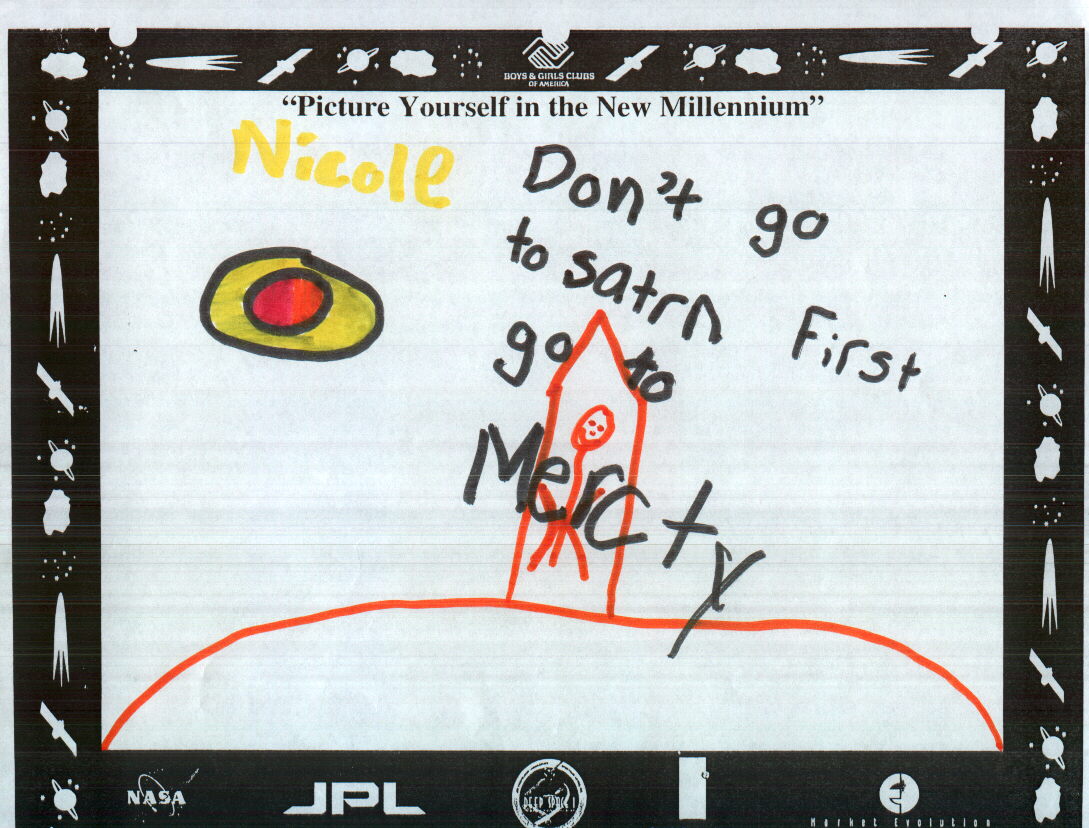 BOYS & GIRLS CLUBS
OF AMERICA
“Picture Yourself in the New Millennium”
Nicole
Don't go
to satrn First
go to
Mercty
NASA
JPL
DEEP SPACE 1
Market Evolution